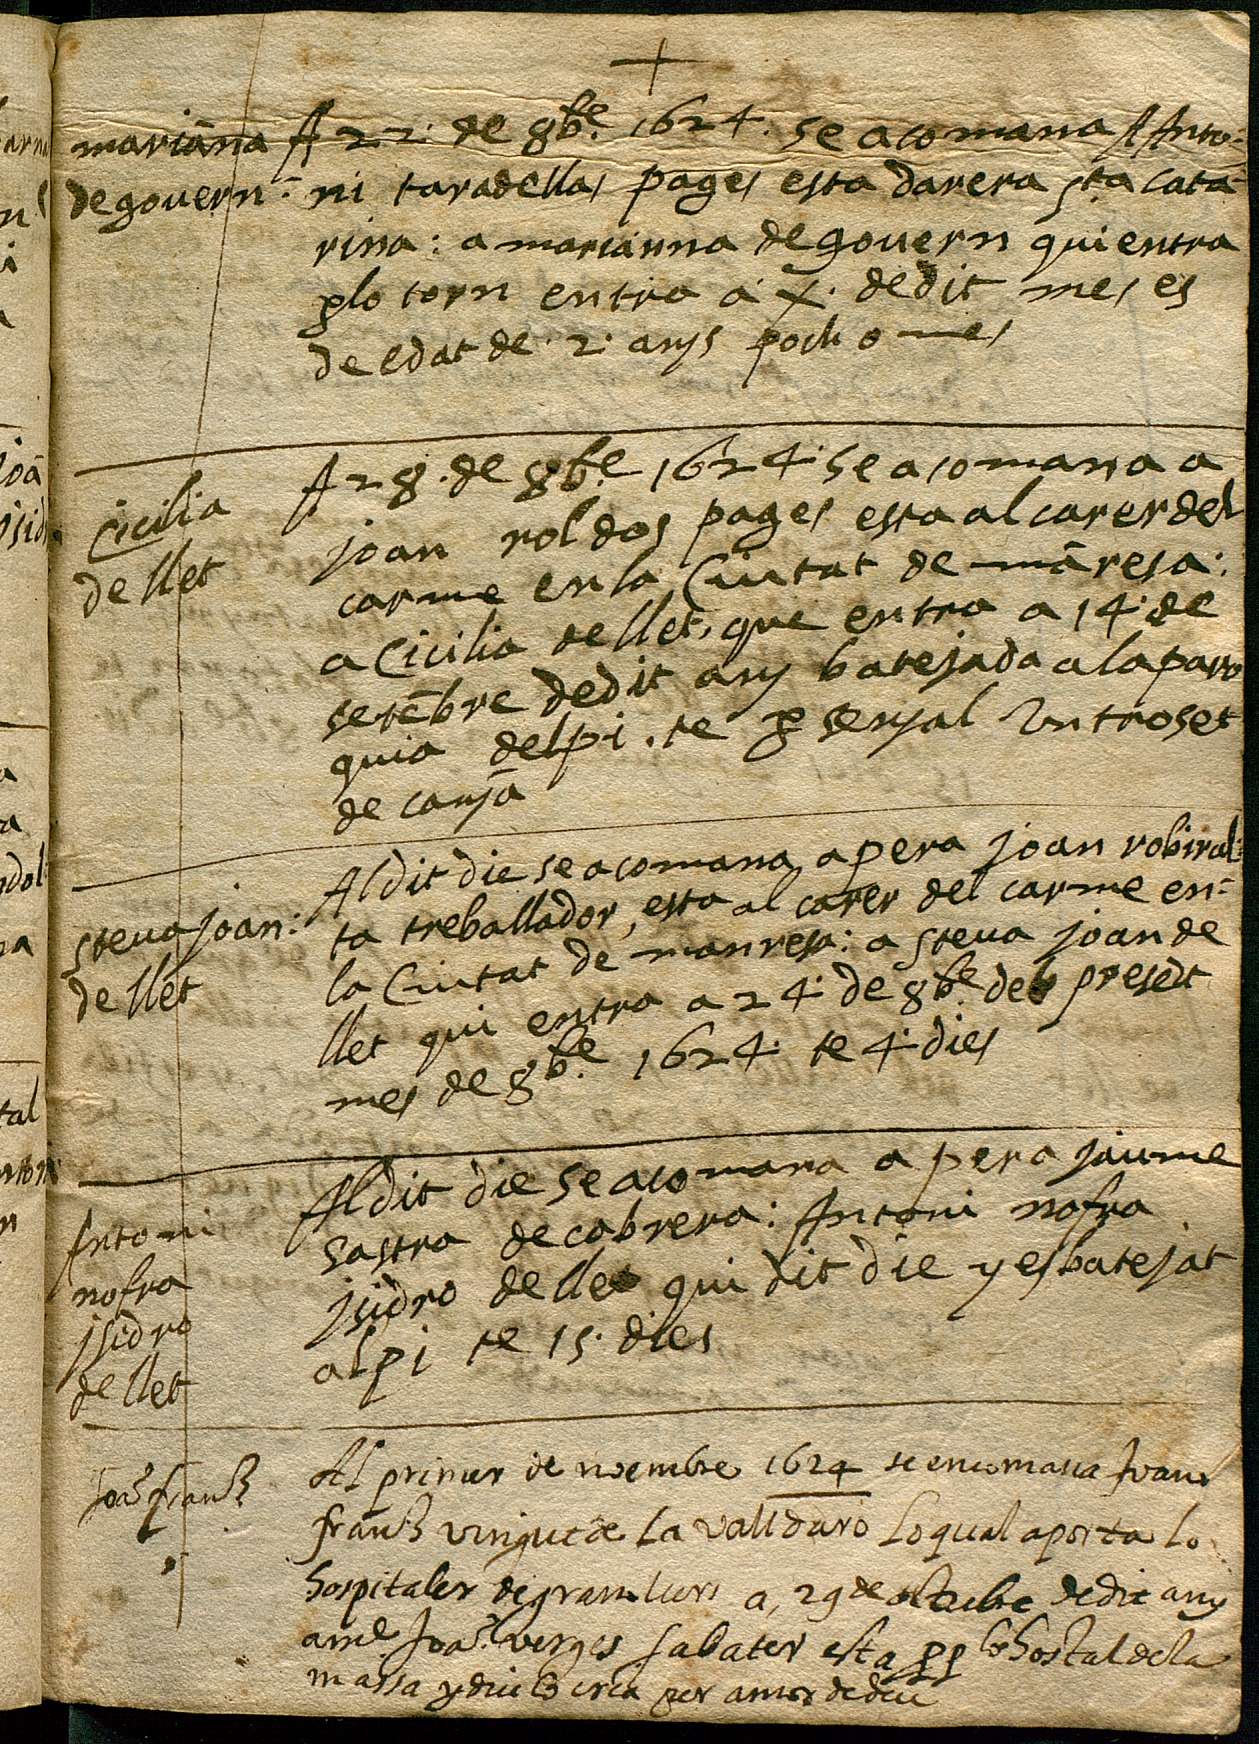 +
mariana
de govern
A 22 de 8bre 1624 se acomana A Anto-
ni taradellas pages esta darera sta cata
rina: a marianna de govern qui entra
plo torn entra a X de dit mes es
de edat de 2 anys poch o mes
Cicilia
de llet
A 28 de 8bre 1624 se acomana a
joan roldos pages esta al carer del
carme en la Ciutat de māresa:
a Cicilia de llet, que entra a 14 de
setēbre de dit any batejada a la paro
quia del pi. te p senyal un troset
de canyā
steva joan:
de llet
Al dit die se acomana a pera joan robiral
ta treballador, esta al carer del carme en-
la Ciutat de manresa: a steva joan de
llet qui entra a 24 de 8bre del present
mes de 8bre 1624 te 4 dies
Antoni
nofra
jsidro
de llet
Al dit die se acomana a pera jaume
sastra de cabrera: Antoni nofra
jsidro de llet qui dit die y es batejat
al pi te 15 dies
Joā franch
Al primer de noembre 1624 se encomana Joan
franch vingut de la vall daro lo qual aporta lo
hospitaler de granullers a 29 de octubre de dit any
amb Joā verges sabater esta pp lo hostal de la
massa y diu lo cria per amor de deu